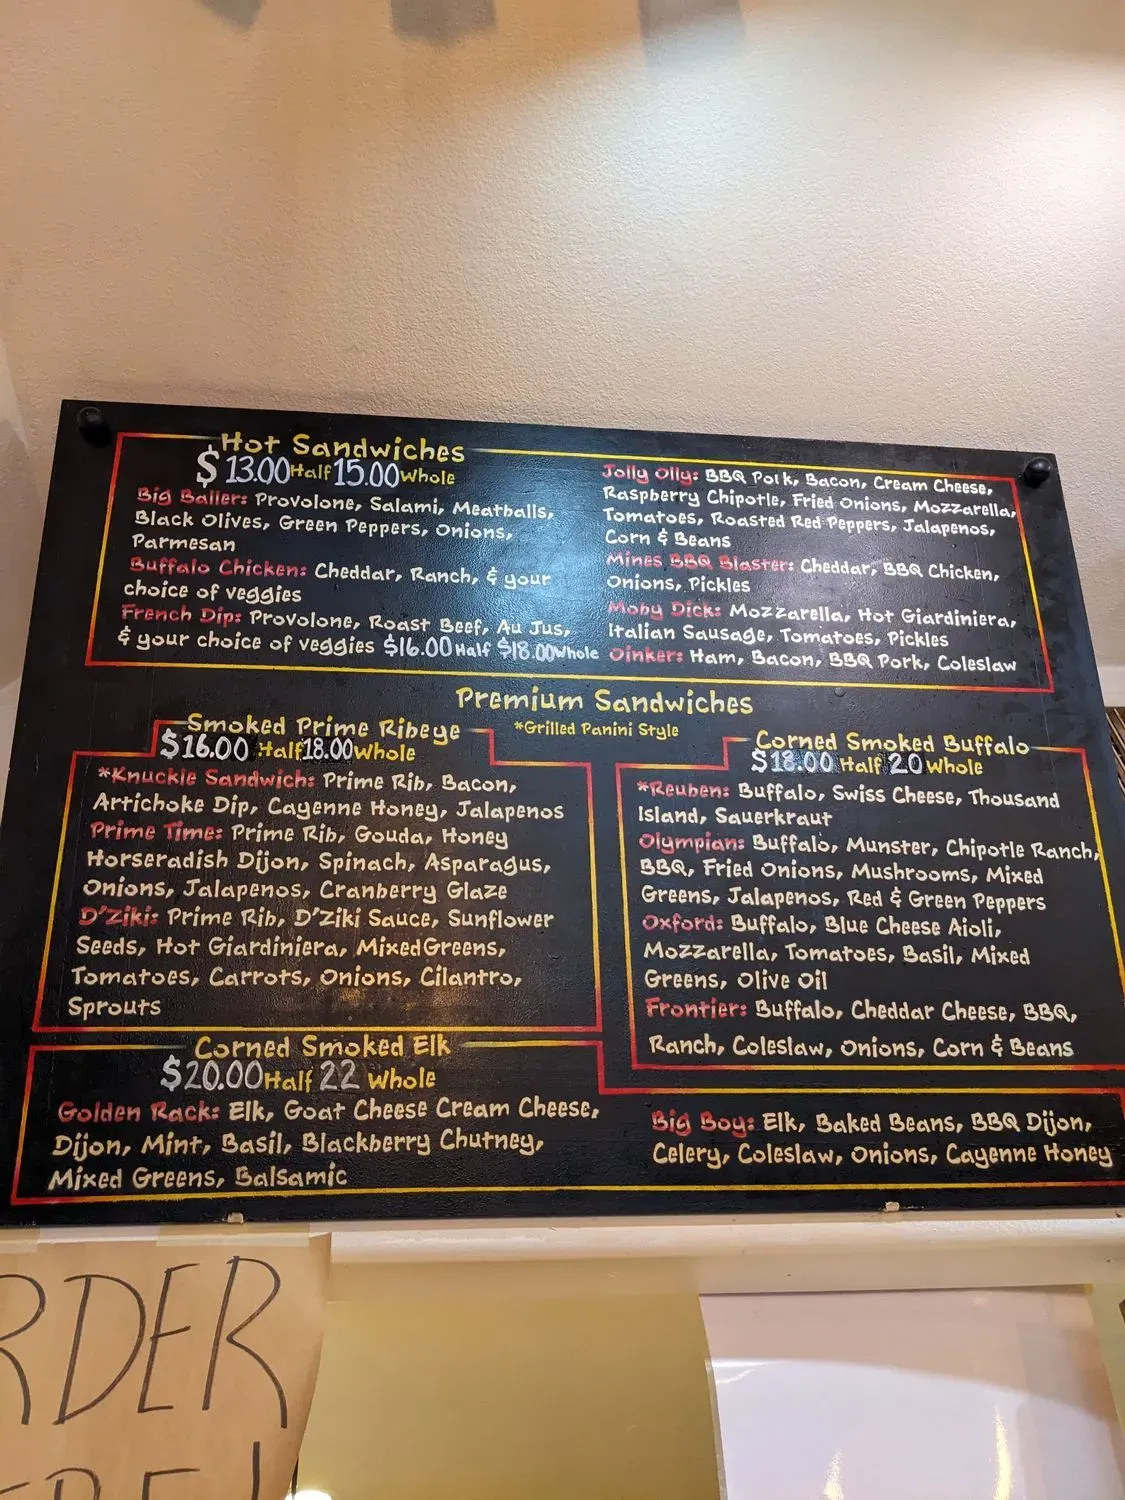 Hot Sandwiches
$13.00 Half 15.00 Whole
Big Baller: Provolone, Salami, Meatballs,
Black Olives, Green Peppers, Onions,
Parmesan
Buffalo Chicken: Cheddar, Ranch, & your
choice of veggies
French Dip: Provolone, Roast Beef, Au Jus,
& your choice of veggies $16.00 Half $18.00 Whole
Jolly Olly: BBQ Pork, Bacon, Cream Cheese,
Raspberry Chipotle, Fried Onions, Mozzarella,
Tomatoes, Roasted Red Peppers, Jalapenos,
Corn & Beans
Mines BBQ Blaster: Cheddar, BBQ Chicken,
Onions, Pickles
Moby Dick: Mozzarella, Hot Giardiniera,
Italian Sausage, Tomatoes, Pickles
Oinker: Ham, Bacon, BBQ Pork, Coleslaw
Premium Sandwiches
*Grilled Panini Style
Smoked Prime Ribeye
$16.00 Half 18.00 Whole
*Knuckle Sandwich: Prime Rib, Bacon,
Artichoke Dip, Cayenne Honey, Jalapenos
Prime Time: Prime Rib, Gouda, Honey
Horseradish Dijon, Spinach, Asparagus,
Onions, Jalapenos, Cranberry Glaze
D'Ziki: Prime Rib, D'Ziki Sauce, Sunflower
Seeds, Hot Giardiniera, Mixed Greens,
Tomatoes, Carrots, Onions, Cilantro,
Sprouts
Corned Smoked Buffalo
$18.00 Half 20 Whole
*Reuben: Buffalo, Swiss Cheese, Thousand
Island, Sauerkraut
Olympian: Buffalo, Munster, Chipotle Ranch,
BBQ, Fried Onions, Mushrooms, Mixed
Greens, Jalapenos, Red & Green Peppers
Oxford: Buffalo, Blue Cheese Aioli,
Mozzarella, Tomatoes, Basil, Mixed
Greens, Olive Oil
Frontier: Buffalo, Cheddar Cheese, BBQ,
Ranch, Coleslaw, Onions, Corn & Beans
Corned Smoked Elk
$20.00 Half 22 Whole
Golden Rack: Elk, Goat Cheese Cream Cheese,
Dijon, Mint, Basil, Blackberry Chutney,
Mixed Greens, Balsamic
Big Boy: Elk, Baked Beans, BBQ Dijon,
Celery, Coleslaw, Onions, Cayenne Honey
RDER